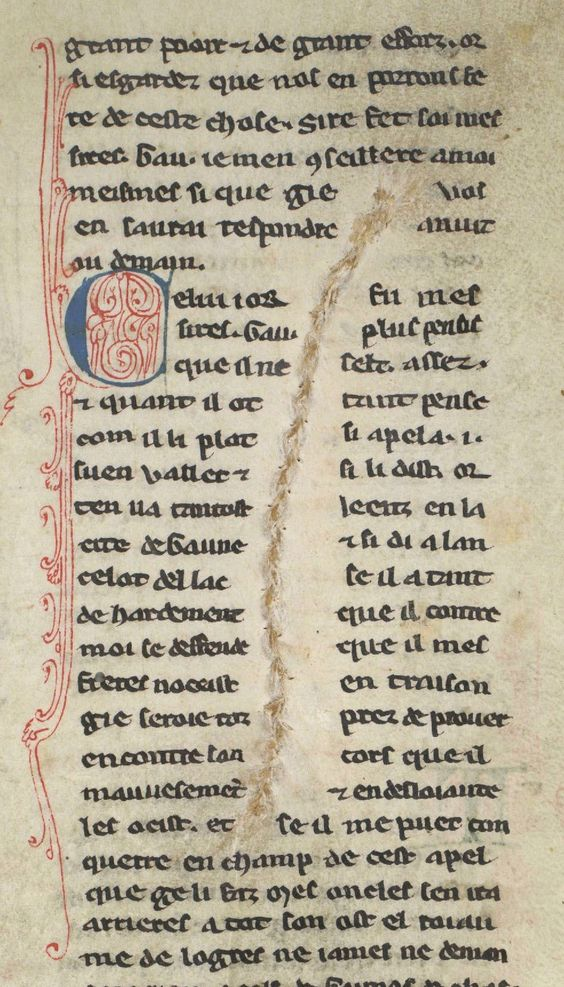 grant pooir ⁊ de grant efforz. or
si esgardez que nos en porrons fe
re de ceste chose. Sire fet soi mes
sires. Gau. ie men ꝯseillere a moi
meismes si que gie vos
en saurai respondre anuit
ou demain.
Celui ior fu mes
sires. Gau. plus pensis
que il ne selt. assez.
⁊ quant il ot tant pense
com il li plot si apela .i.
suen vallet ⁊ si li dist or
ten va tantost leenz en la
cite de Gaune ⁊ si di a lan
celot del lac se il a tant
de hardement que il contre
moi se deffende que il mes
freres noceist en traison
gie seroie toz prez de prover
encontre lan cors que il
mauuesement ⁊ en desloiaute
les ocist. et se il me puet con
querre en champ de cest apel
que ge li faz mes oncles sen ira
arrieres a tot son ost el roiau
me de logres ne iames ne deman